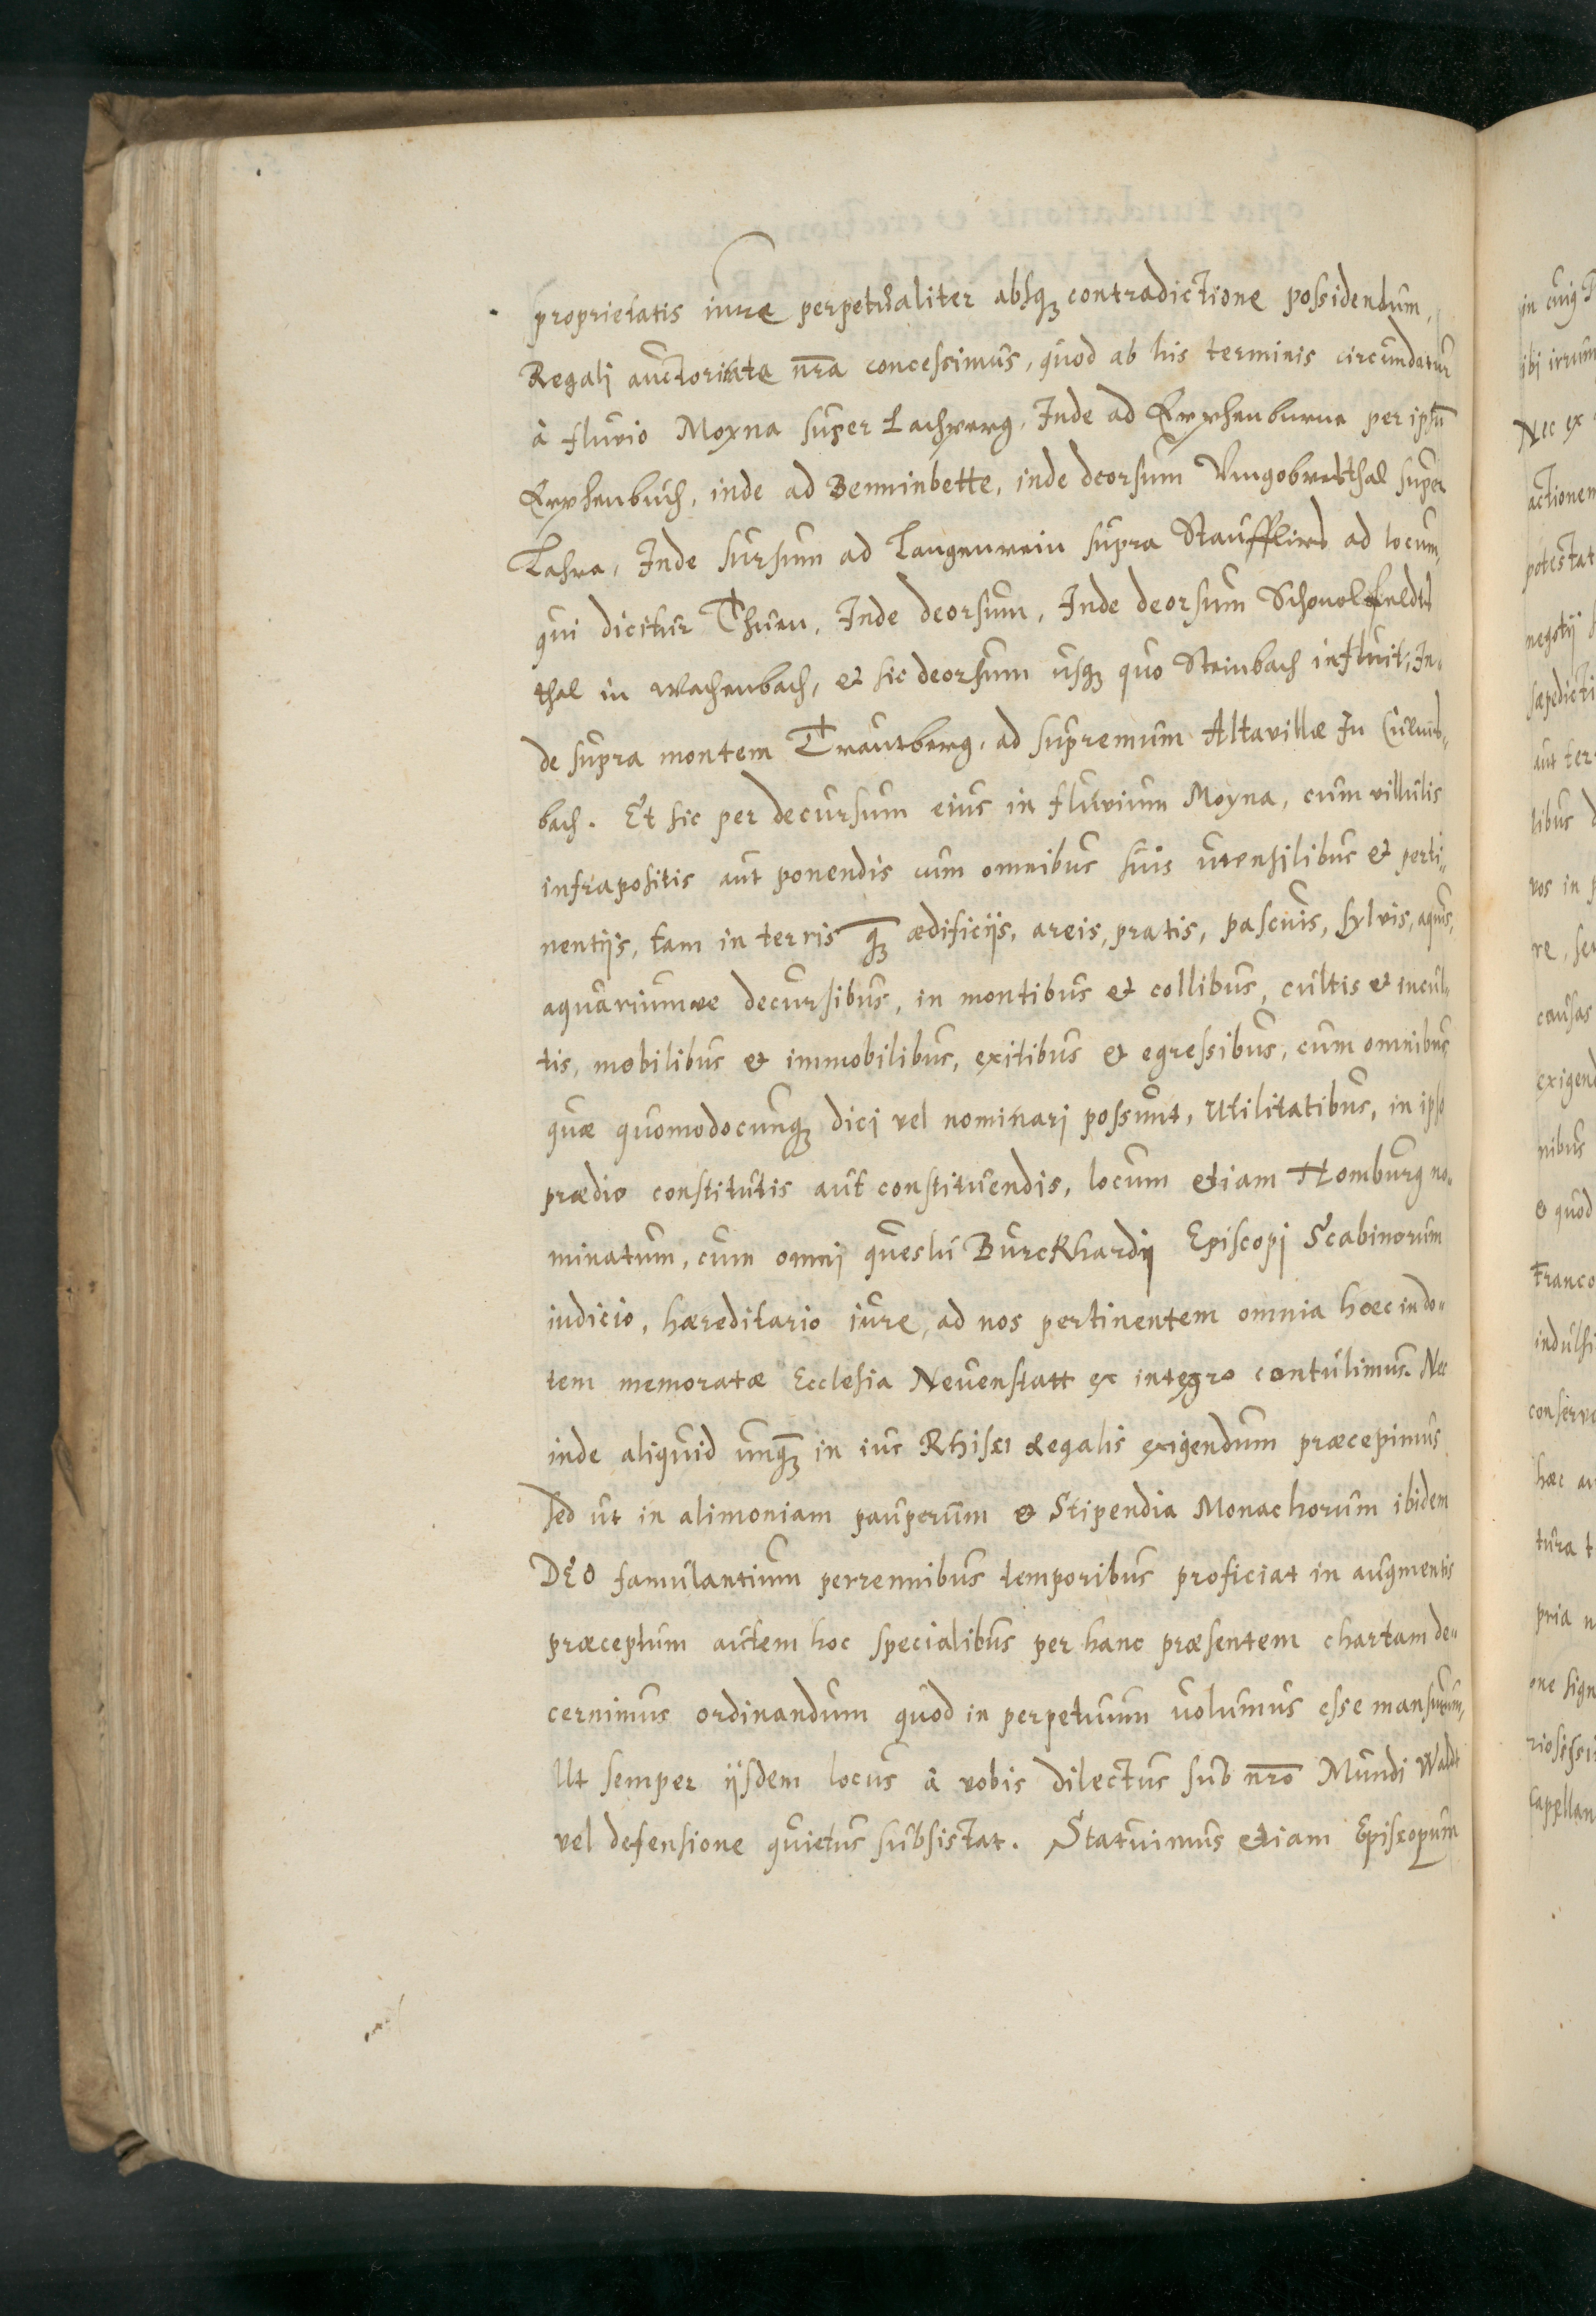 proprietatis iure perpetualiter absqꝫ contradictione possidendum,
Regali auctoritate nr̃a concessimus, quod ab his terminis circumdatur
à fluvio Moyna super Lachverg, Inde ad Erphenburne per ipsũ
Erphenbuch, inde ad Benninbette, inde deorsum super
Lahra, Inde sursum ad Langenrein supra ad locum,
qui dicitur Thurn, Inde deorsum, Inde deorsum
thal in Wachenbach, et sic deorsum usqꝫ quo Steinbach influit, In-
de supra montem Trautberg, ad supremum Altavillæ In
bach. Et sic per decursum eius in fluvium Moyna, cum villulis
infrapositis aut ponendis cum omnibus suis utensilibus et perti-
nentijs, tam in terris qꝫ ædificijs, areis, pratis, pascuis, sylvis, aquis,
aquariumve decursibus, in montibus et collibus, cultis et incul-
tis, mobilibus et immobilibus, exitibus et egressibus, cum omnibus
quæ quomodocunqꝫ dici vel nominari possunt, Utilitatibus, in ipso
prædio constitutis aut constituendis, locum etiam Homburg no-
minatum, cum omni questu Burckhardij Episcopi Scabinorum
iudicio, hæreditario iure, ad nos pertinentem omnia hæc in do-
tem memoratæ Ecclesia Neuenstatt ex integro contulimus. Nec
inde aliquid unqꝫ in ius Rhisci Regalis exigendum præcepimus
sed ut in alimoniam pauperum et Stipendia Monachorum ibidem
DEO famulantium perrennibus temporibus proficiat in augmentis
præceptum autem hoc specialibus per hanc præsentem chartam de-
cernimus ordinandum quod in perpetuum volumus esse mansurum,
Ut semper ijsdem locus à vobis dilectus sub nr̃o Mundi Waldt
vel defensione quietus subsistat. Statuimus etiam Episcopum